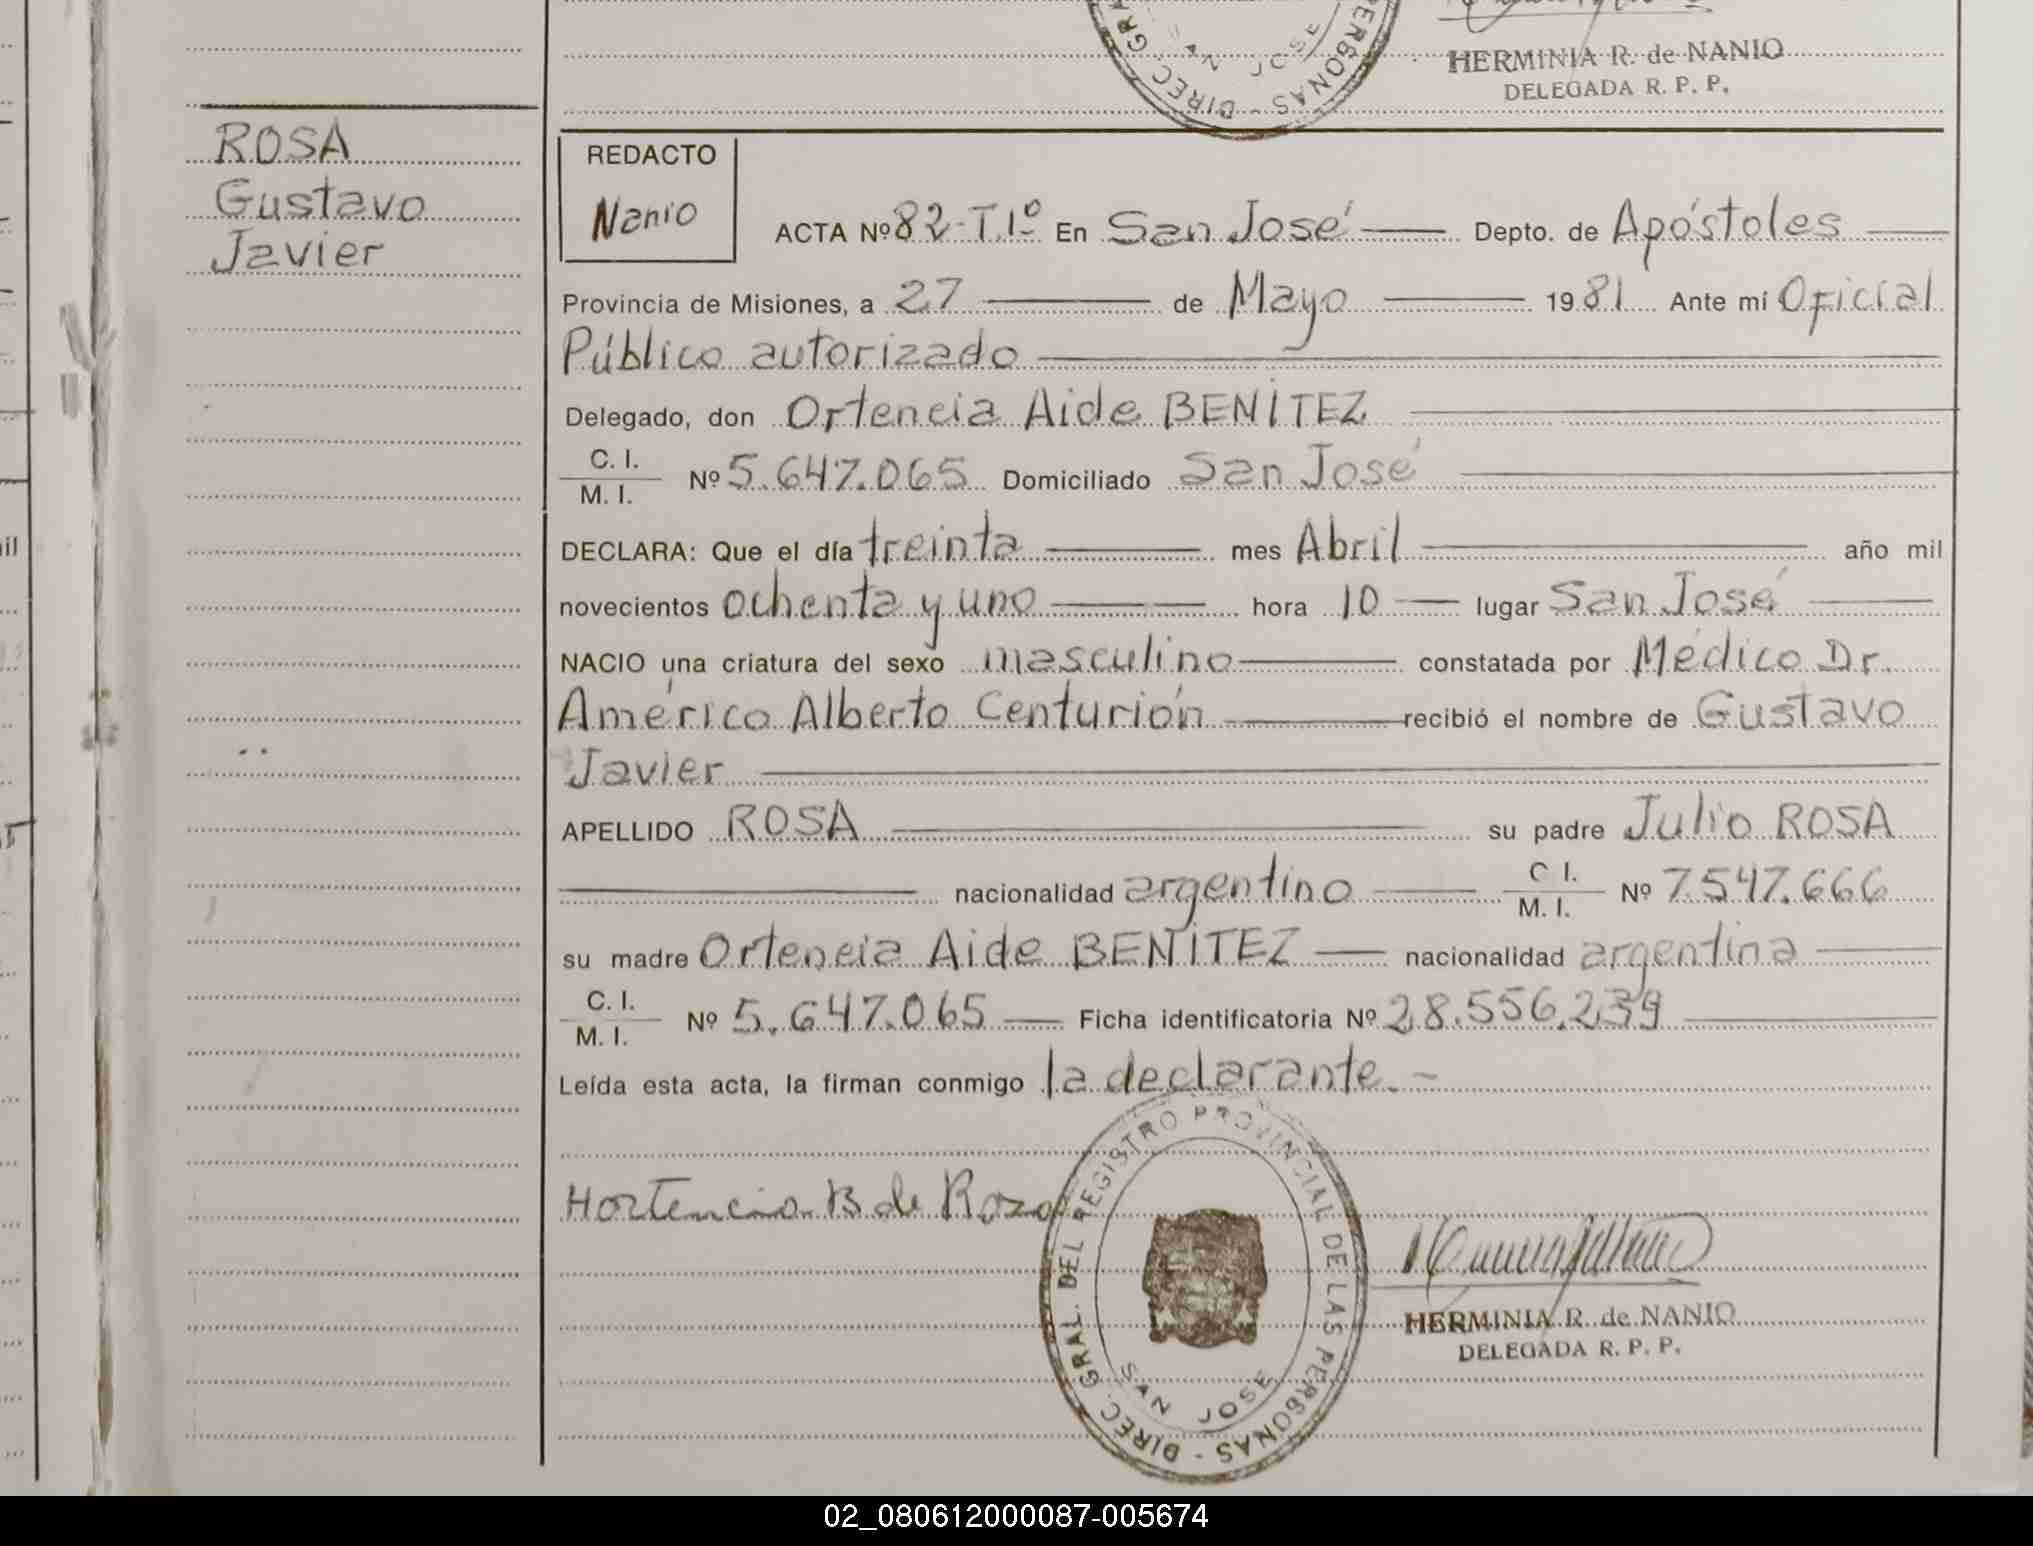 HERMINIA R. de NANIO
DELEGADA R. P. P.
ROSA
Gustavo
Javier
REDACTO
Nanio
ACTA Nº 82-T.1º En San José Depto. de Apóstoles
Provincia de Misiones, a 27 de Mayo 1981 Ante mí Oficial
Público autorizado
Delegado, don Ortencia Aide BENITEZ
C. I.
M. I. Nº 5.647.065 Domiciliado San José
DECLARA: Que el día treinta mes Abril año mil
novecientos ochenta y uno hora 10 lugar San José
NACIO una criatura del sexo masculino constatada por Médico Dr.
Américo Alberto Centurión recibió el nombre de Gustavo
Javier
APELLIDO ROSA su padre Julio ROSA
nacionalidad argentino C. I. M. I. Nº 7.547.666
su madre Ortencia Aide BENITEZ nacionalidad argentina
C. I.
M. I. Nº 5.647.065 Ficha identificatoria Nº 28.556.239
Leída esta acta, la firman conmigo la declarante.-
Hortencia B de Roza
DIREC. GRAL. DEL REGISTRO PROVINCIAL DE LAS PERSONAS -
SAN JOSE
HERMINIA R. de NANIO
DELEGADA R. P. P.
02_080612000087-005674